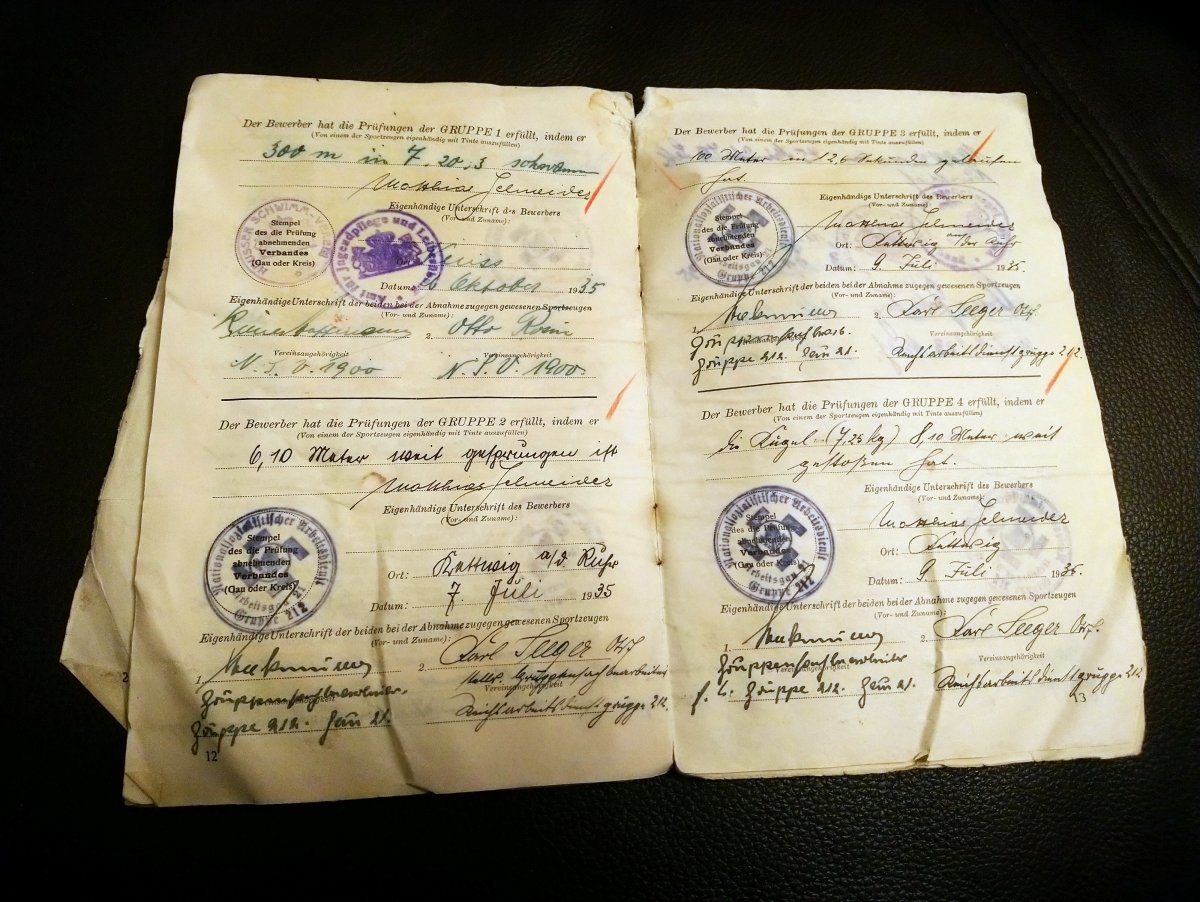 Der Bewerber hat die Prüfungen der GRUPPE 1 erfüllt, indem er
(Von einem der Sportzeugen eigenhändig mit Tinte auszufüllen)
300 m in 7.20,3
Matthias Schneider
Eigenhändige Unterschrift des Bewerbers
(Vor- und Zuname):
SCHWIMM-VEREIN
Stempel
des die Prüfung
abnehmenden
Verbandes
(Gau oder Kreis)
Amt für Jugendpflege und
Datum: Oktober 1935
Eigenhändige Unterschrift der beiden bei der Abnahme zugegen gewesenen Sportzeugen
(Vor- und Zuname):
2. Otto
Vereinsangehörigkeit Vereinsangehörigkeit
N.S.V. 1900 N.S.V. 1900
Der Bewerber hat die Prüfungen der GRUPPE 2 erfüllt, indem er
(Von einem der Sportzeugen eigenhändig mit Tinte auszufüllen)
6,10 Meter weit gesprungen ist
Matthias Schneider
Eigenhändige Unterschrift des Bewerbers
(Vor- und Zuname):
Nationalsozialistischer Arbeitsdienst
Arbeitsgau 21
Gruppe 212
Stempel
des die Prüfung
abnehmenden
Verbandes
(Gau oder Kreis)
Ort: Kettwig a/d. Ruhr
Datum: 7. Juli 1935
Eigenhändige Unterschrift der beiden bei der Abnahme zugegen gewesenen Sportzeugen
(Vor- und Zuname):
1. 2. Karl Seeger
Gruppensachbearbeiter.
Vereinsangehörigkeit
Gruppe 212. Gau 21. Reichsarbeitsdienstgruppe 212.
12
Der Bewerber hat die Prüfungen der GRUPPE 3 erfüllt, indem er
(Von einem der Sportzeugen eigenhändig mit Tinte auszufüllen)
100 Meter in 12,6 Sekunden gelaufen
hat.
Eigenhändige Unterschrift des Bewerbers
(Vor- und Zuname):
Matthias Schneider
Nationalsozialistischer Arbeitsdienst
Arbeitsgau 21
Gruppe 212
Stempel
des die Prüfung
abnehmenden
Verbandes
(Gau oder Kreis)
Ort: Kettwig an der Ruhr
Datum: 9. Juli 1935.
Eigenhändige Unterschrift der beiden bei der Abnahme zugegen gewesenen Sportzeugen
(Vor- und Zuname):
1. 2. Karl Seeger
Vereinsangehörigkeit
Gruppe 212. Gau 21. Reichsarbeitsdienstgruppe 212.
Der Bewerber hat die Prüfungen der GRUPPE 4 erfüllt, indem er
(Von einem der Sportzeugen eigenhändig mit Tinte auszufüllen)
die Kugel (7,25 kg) 8,10 Meter weit
gestoßen hat.
Eigenhändige Unterschrift des Bewerbers
(Vor- und Zuname):
Matthias Schneider
Nationalsozialistischer Arbeitsdienst
Arbeitsgau 21
Gruppe 212
Stempel
des die Prüfung
abnehmenden
Verbandes
(Gau oder Kreis)
Ort: Kettwig
Datum: 9. Juli
Eigenhändige Unterschrift der beiden bei der Abnahme zugegen gewesenen Sportzeugen
(Vor- und Zuname):
1. 2. Karl Seeger
Gruppensachbearbeiter
Vereinsangehörigkeit
Gruppe 212. Gau 21. Reichsarbeitsdienstgruppe 212
13